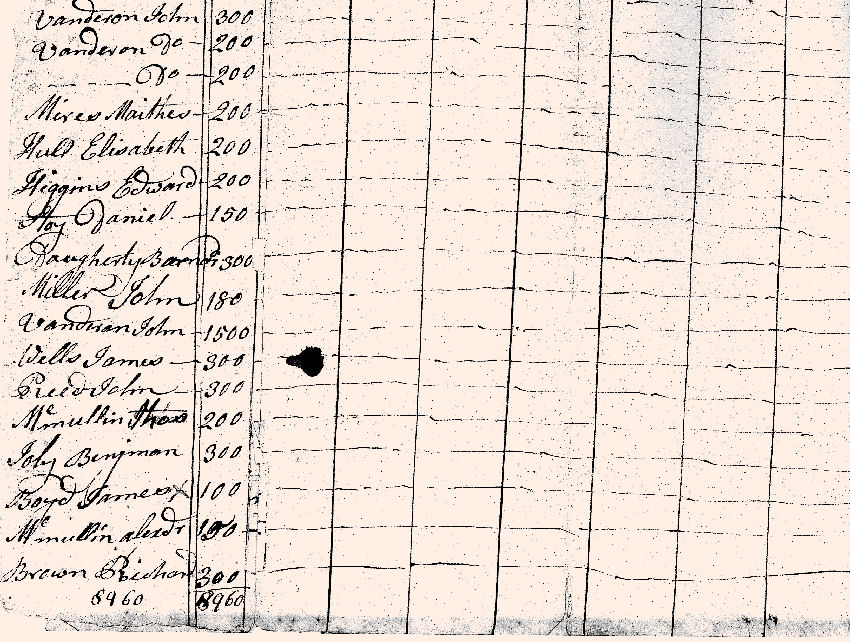 Vanderon John 300
Vanderon Do 200
Do 200
Mires Maithes 200
Huld Elisabeth 200
Higgins Edward 200
Stoy Daniel 150
Daugherty Barnd 300
Miller John 180
Vanderan John 1500
Wells James 300
Preed John 300
Mcmullin Thos 200
Joly Benjman 300
Boyd James 100
Mcmullin alexdr
Brown Richard 300
8960 8960